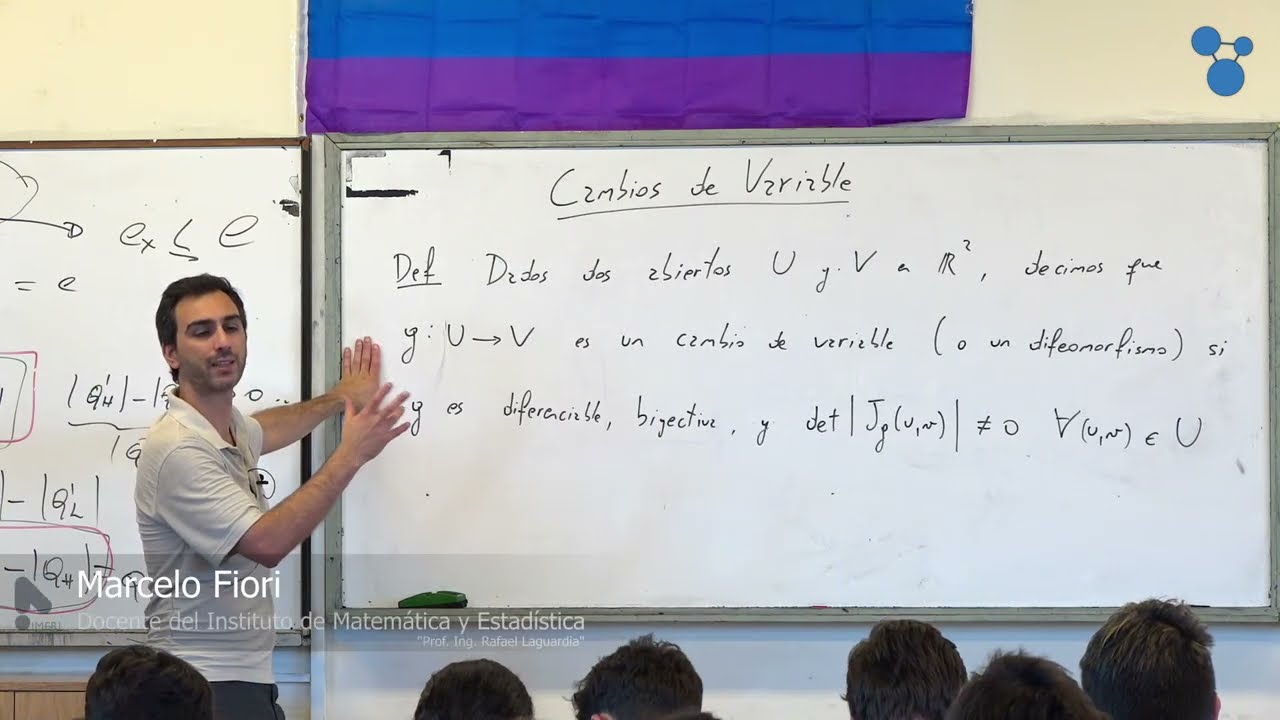 Cambios de Variable
Def Dados dos abiertos U y V en ℝ², decimos que
g: U → V es un cambio de variable (o un difeomorfismo) si
g es diferenciable, biyectiva, y det |J_g(u,v)| ≠ 0 ∀(u,v) ∈ U
e_x ≤ e
= e
|Q'_L|
Marcelo Fiori
Docente del Instituto de Matemática y Estadística
"Prof. Ing. Rafael Laguardia"